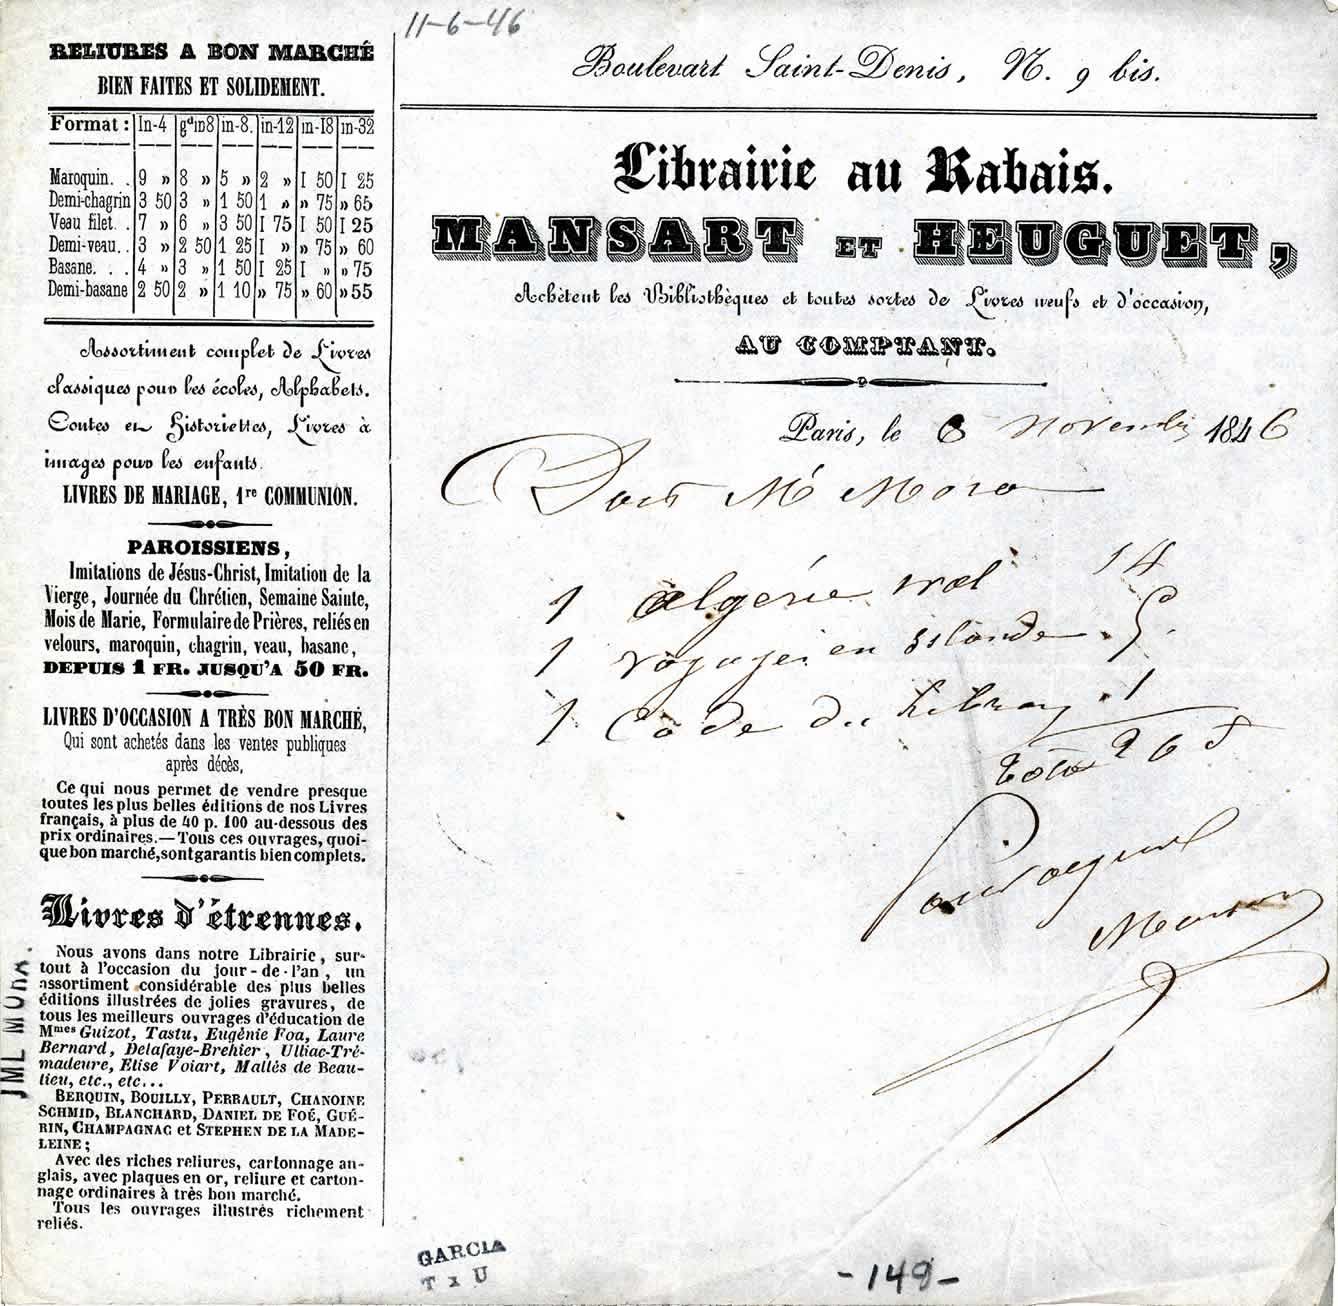 11-6-46
RELIURES A BON MARCHÉ
BIEN FAITES ET SOLIDEMENT.
Format : In-4 gd in8 in-8. in-12 in-18 in-32
Maroquin. . 9 » 8 » 5 » 2 » 1 50 1 25
Demi-chagrin 3 50 3 » 1 50 1 » » 75 » 65
Veau filet. . 7 » 6 » 3 50 1 75 1 50 1 25
Demi-veau. . 3 » 2 50 1 25 1 » » 75 » 60
Basane. . . 4 » 3 » 1 50 1 25 1 » » 75
Demi-basane 2 50 2 » 1 10 » 75 » 60 » 55
Assortiment complet de Livres
classiques pour les écoles, Alphabets.
Contes et Historiettes, Livres à
images pour les enfants.
LIVRES DE MARIAGE, 1re COMMUNION.
PAROISSIENS,
Imitations de Jésus-Christ, Imitation de la
Vierge, Journée du Chrétien, Semaine Sainte,
Mois de Marie, Formulaire de Prières, reliés en
velours, maroquin, chagrin, veau, basane,
DEPUIS 1 FR. JUSQU'A 50 FR.
LIVRES D'OCCASION A TRÈS BON MARCHÉ,
Qui sont achetés dans les ventes publiques
après décès,
Ce qui nous permet de vendre presque
toutes les plus belles éditions de nos Livres
français, à plus de 40 p. 100 au-dessous des
prix ordinaires.—Tous ces ouvrages, quoi-
que bon marché, sont garantis bien complets.
Livres d'étrennes.
Nous avons dans notre Librairie, sur-
tout à l'occasion du jour-de-l'an, un
assortiment considérable des plus belles
éditions illustrées de jolies gravures, de
tous les meilleurs ouvrages d'éducation de
Mmes Guizot, Tastu, Eugénie Foa, Laure
Bernard, Delafaye-Brehier, Ulliac-Tré-
madeure, Elise Voiart, Mallès de Beau-
lieu, etc., etc...
BERQUIN, BOUILLY, PERRAULT, CHANOINE
SCHMID, BLANCHARD, DANIEL DE FOÉ, GUÉ-
RIN, CHAMPAGNAC et STEPHEN DE LA MADE-
LEINE ;
Avec des riches reliures, cartonnage an-
glais, avec plaques en or, reliure et carton-
nage ordinaires à très bon marché.
Tous les ouvrages illustrés richement
reliés.
JML MORA.
Boulevart Saint-Denis, N. 9 bis.
Librairie au Rabais.
MANSART ET HEUGUET,
Achètent les Bibliothèques et toutes sortes de Livres neufs et d'occasion,
AU COMPTANT.
Paris, le 6 novembre 1846
Doit Mr Mora
1 algérie 14
1 voyages en islande . 5.
1 Code du . 1
total 20 f
Pour acquit
Mansart
GARCIA
T x U
-149-